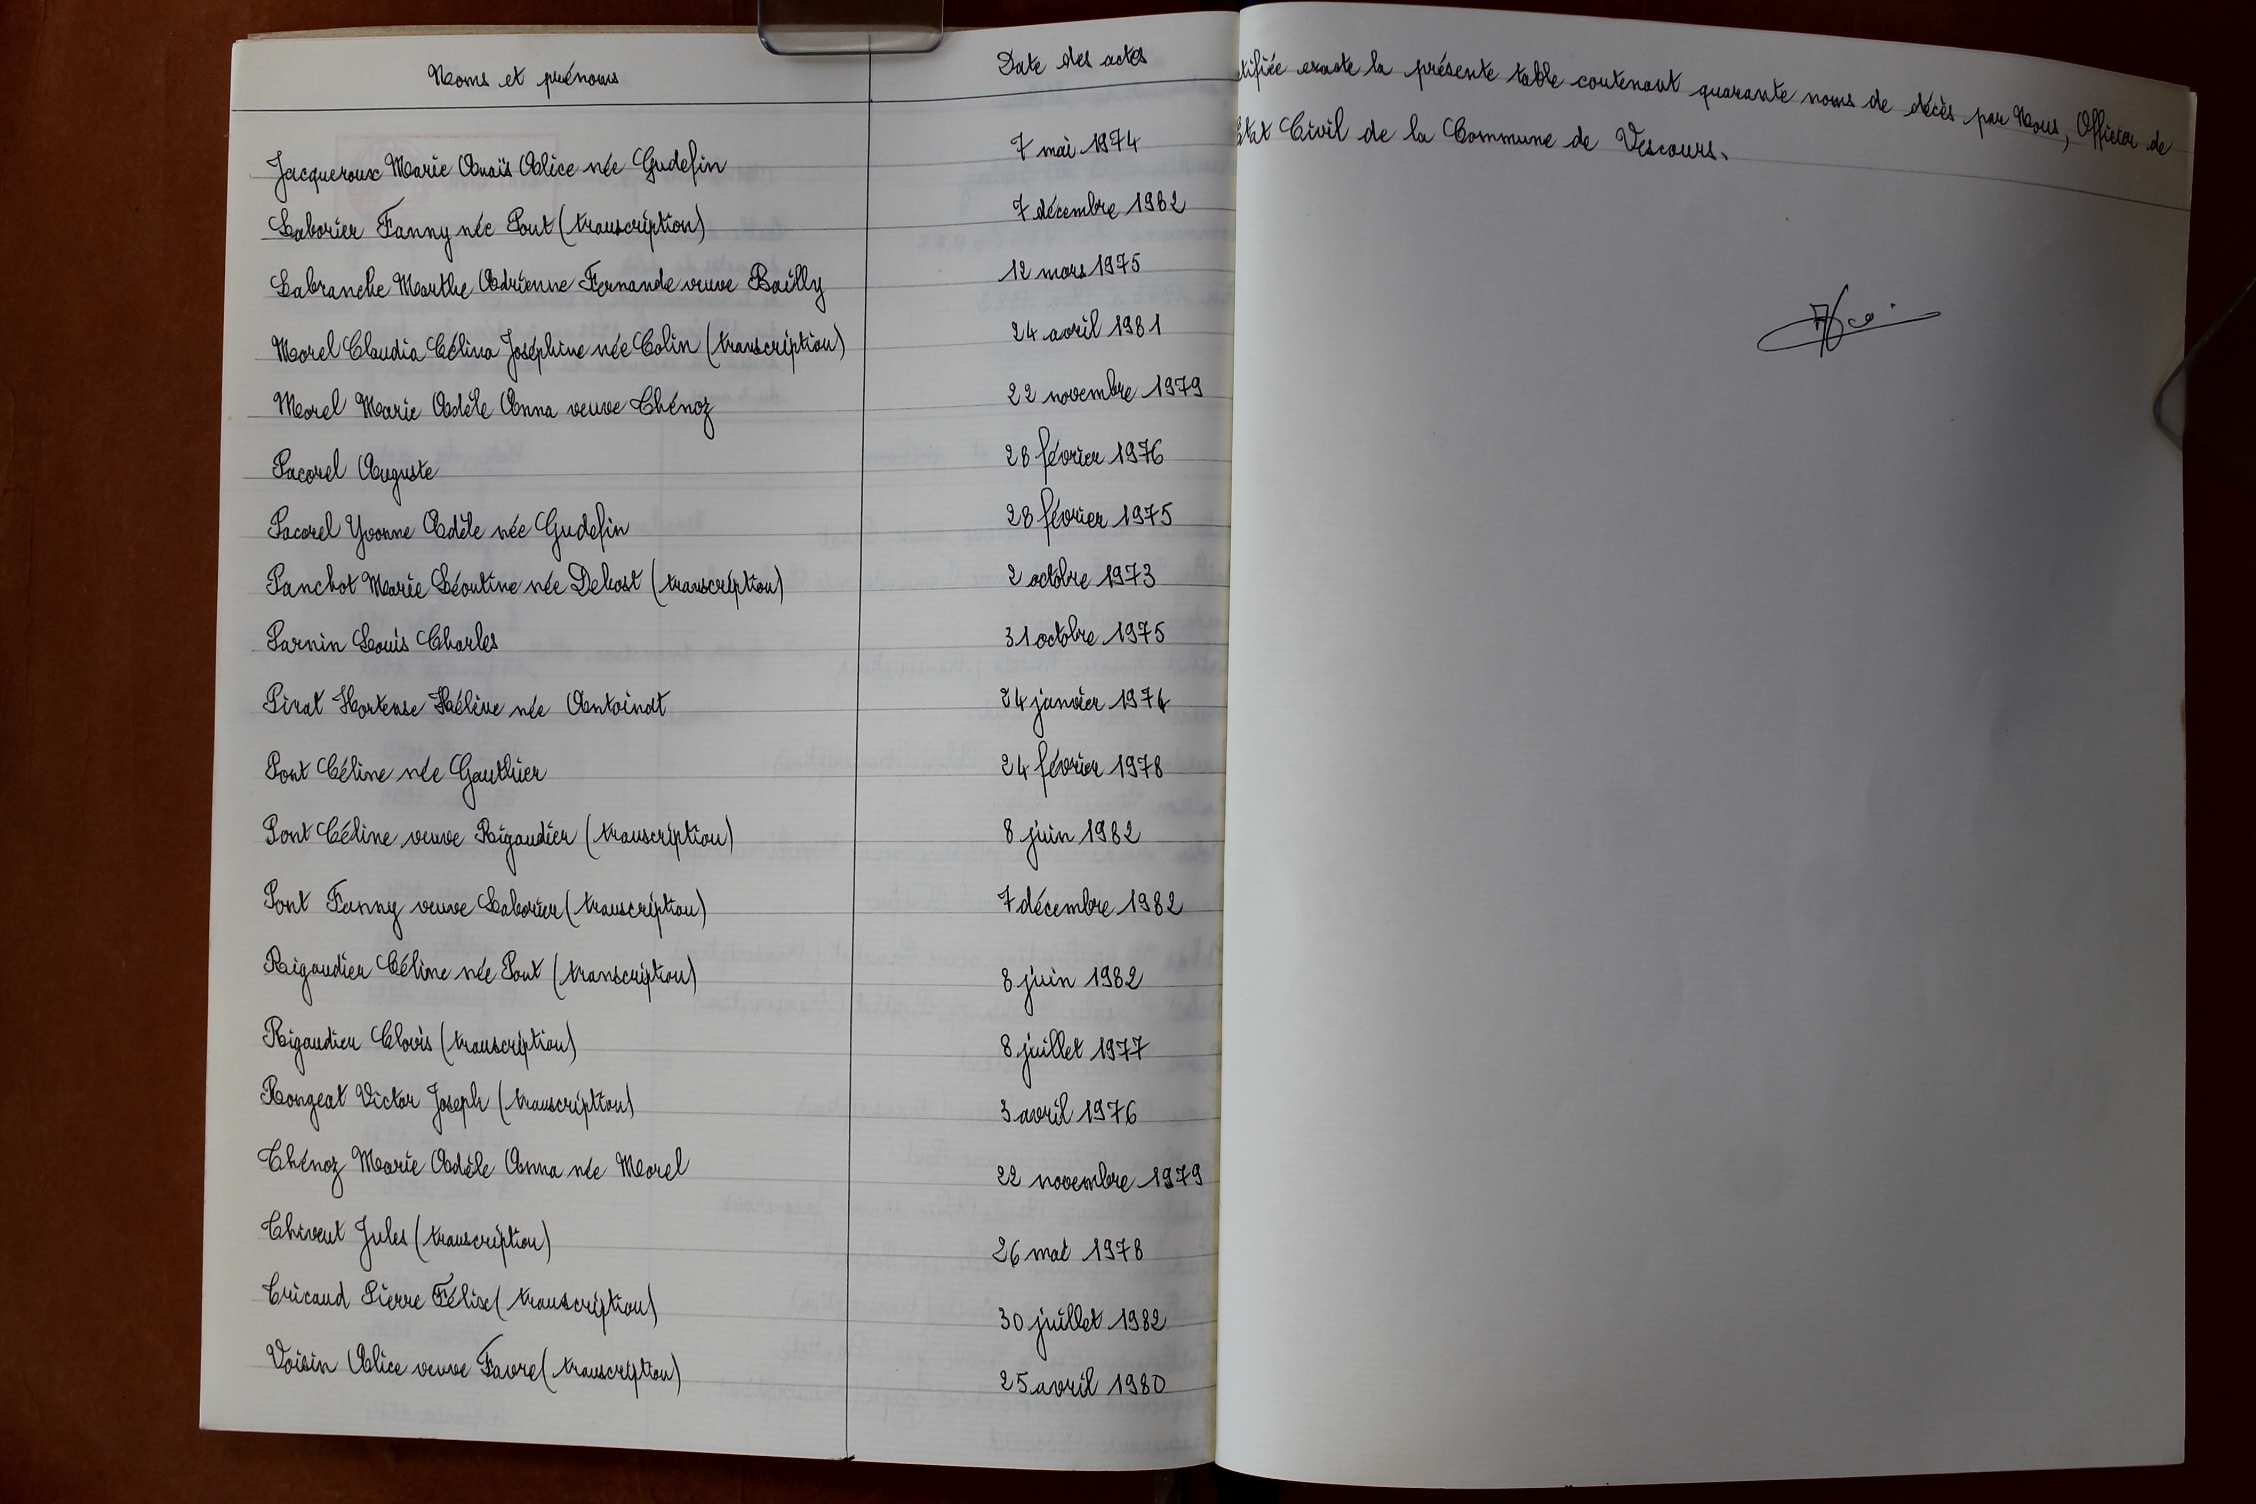 Noms et prénoms Date des actes
Jacqueroux Marie Anaïs Alice née Gudefin 7 mai 1974
Laborier Fanny née Pont (transcription) 7 décembre 1982
Labranche Marthe Adrienne Fernande veuve Bailly 12 mars 1975
Morel Claudia Célina Joséphine née Colin (transcription) 24 avril 1981
Morel Marie Adèle Anna veuve Thénoz 22 novembre 1979
Pacorel Auguste 28 février 1976
Pacorel Yvonne Adèle née Gudefin 28 février 1975
Panchot Marie Léontine née Debost (transcription) 2 octobre 1973
Parnin Louis Charles 31 octobre 1975
Pirat Hortense Hélène née Antoinat 24 janvier 1974
Pont Céline née Gauthier 24 février 1978
Pont Céline veuve Rigaudier (transcription) 8 juin 1982
Pont Fanny veuve Laborier (transcription) 7 décembre 1982
Rigaudier Céline née Pont (transcription) 8 juin 1982
Rigaudier Clovis (transcription) 8 juillet 1977
Rongeat Victor Joseph (transcription) 3 avril 1976
Thénoz Marie Adèle Anna née Morel 22 novembre 1979
Thivent Jules (transcription) 26 mai 1978
Tricaud Pierre Félix (transcription) 30 juillet 1982
Voisin Alice veuve Favre (transcription) 25 avril 1980
tifiée exacte la présente table contenant quarante noms de décès par Nous, Officier de
Etat Civil de la Commune de Vescours.